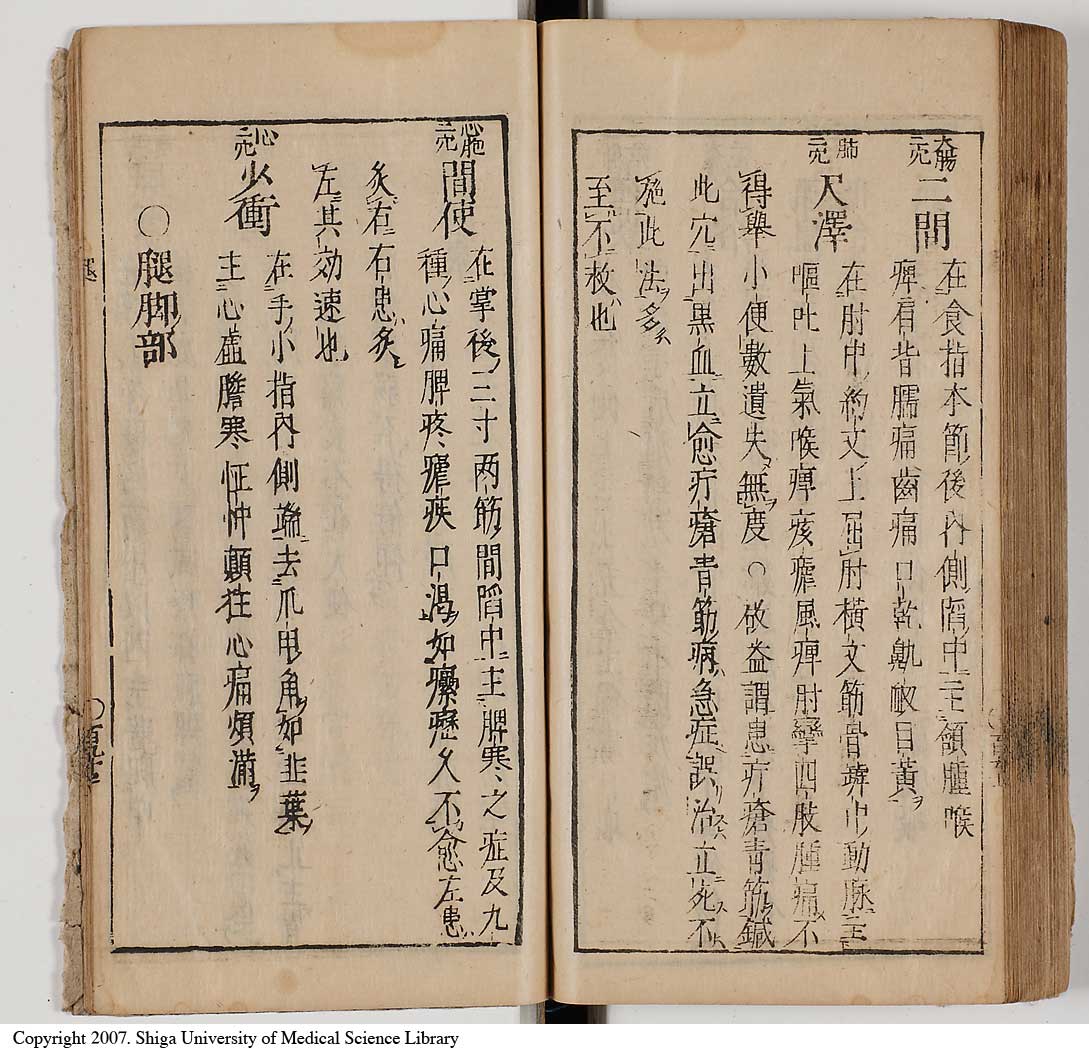 大腸二穴 二間 在食指本節後内側陷中主頷腫喉
痺肩背臑痛齒痛口乾鼽衂目黃
肺二穴 尺澤 在肘中約文上屈肘橫文筋骨罅中動脉主
嘔吐上氣喉痺痎瘧風痺肘攣四肢腫痛不
得舉小便數遺失無度○啟益謂患疔瘡青筋鍼
此穴出黑血立愈疔瘡青筋病急症誤治立死不
施此法多
至不救也
心胞二穴 間使 在掌後三寸两筋間陷中主脾寒之症及九
種心痛脾疼瘧疾口渴如瘰癧久不愈左患
灸右右患灸
左其効速也
心二穴 少衝 在手小指内側端去爪甲角如韭葉
主心虛膽寒怔忡顛狂心痛煩滿
○腿脚部
Copyright 2007. Shiga University of Medical Science Library